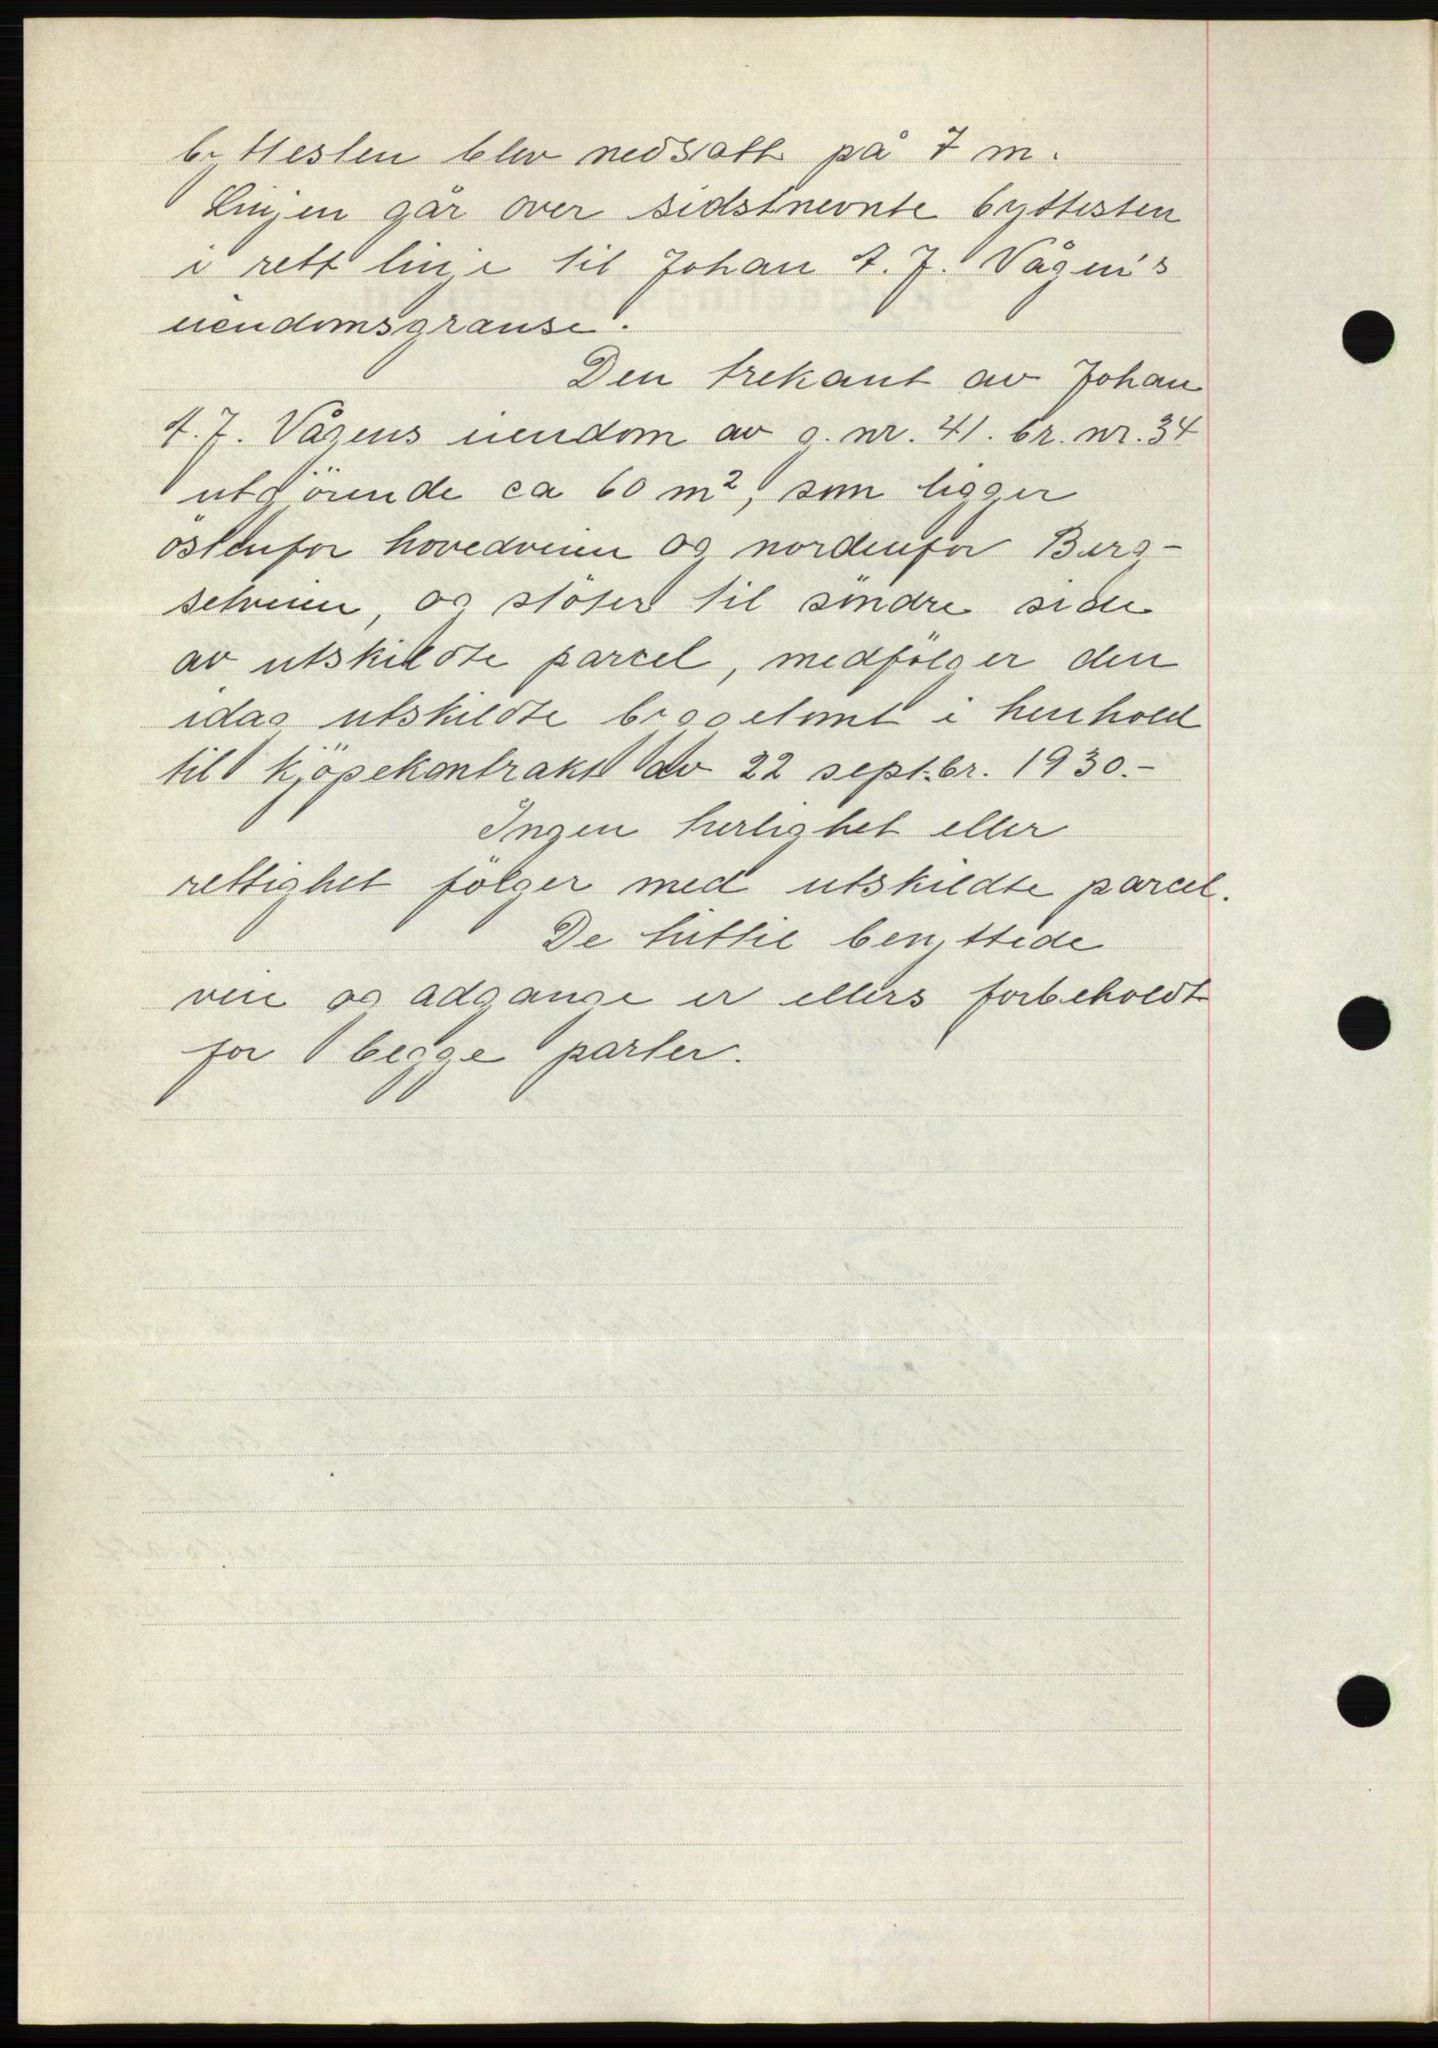 byttesten blev nedsatt på 7 m.
Linjen går over sidstnevnte byttesten
i rett linje til Johan A. J. Vågen's
eiendomsgranse.
Den trekant av Johan
A. J. Vågens eiendom av g. nr. 41. br. nr. 34
utgjörende ca 60 m², som ligger
östenfor hovedveien og nordenfor Berg-
setveien, og stöter til söndre side
av utskildte parcel, medfölger den
idag utskildte byggetomt i henhold
til kjöpekontrakt av 22 septbr. 1930.-
Ingen herlighet eller
rettighet fölger med utskildte parcel.
De hittil benyttede
veie og adgange er ellers forbeholdt
for begge parter.